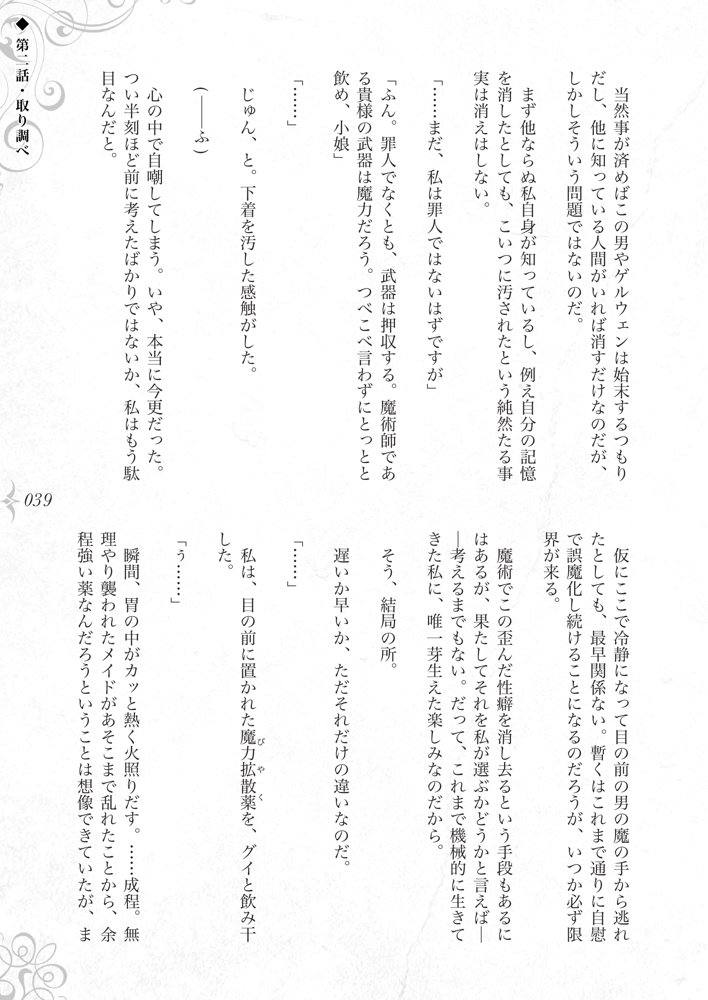 ◆ 第二話・取り調べ
当然事が済めばこの男やゲルウェンは始末するつもり
だし、他に知っている人間がいれば消すだけなのだが、
しかしそういう問題ではないのだ。
まず他ならぬ私自身が知っているし、例え自分の記憶
を消したとしても、こいつに汚されたという純然たる事
実は消えはしない。
「……まだ、私は罪人ではないはずですが」
「ふん。罪人でなくとも、武器は押収する。魔術師であ
る貴様の武器は魔力だろう。つべこべ言わずにとっとと
飲め、小娘」
「……」
じゅん、と。下着を汚した感触がした。
(――ふ)
心の中で自嘲してしまう。いや、本当に今更だった。
つい半刻ほど前に考えたばかりではないか、私はもう駄
目なんだと。
仮にここで冷静になって目の前の男の魔の手から逃れ
たとしても、最早関係ない。暫くはこれまで通りに自慰
で誤魔化し続けることになるのだろうが、いつか必ず限
界が来る。
魔術でこの歪んだ性癖を消し去るという手段もあるに
はあるが、果たしてそれを私が選ぶかどうかと言えば―
―考えるまでもない。だって、これまで機械的に生きて
きた私に、唯一芽生えた楽しみなのだから。
そう、結局の所。
遅いか早いか、ただそれだけの違いなのだ。
「……」
私は、目の前に置かれた魔力拡散薬(びやく)を、グイと飲み干
した。
「う……」
瞬間、胃の中がカッと熱く火照りだす。……成程。無
理やり襲われたメイドがあそこまで乱れたことから、余
程強い薬なんだろうということは想像できていたが、ま
039